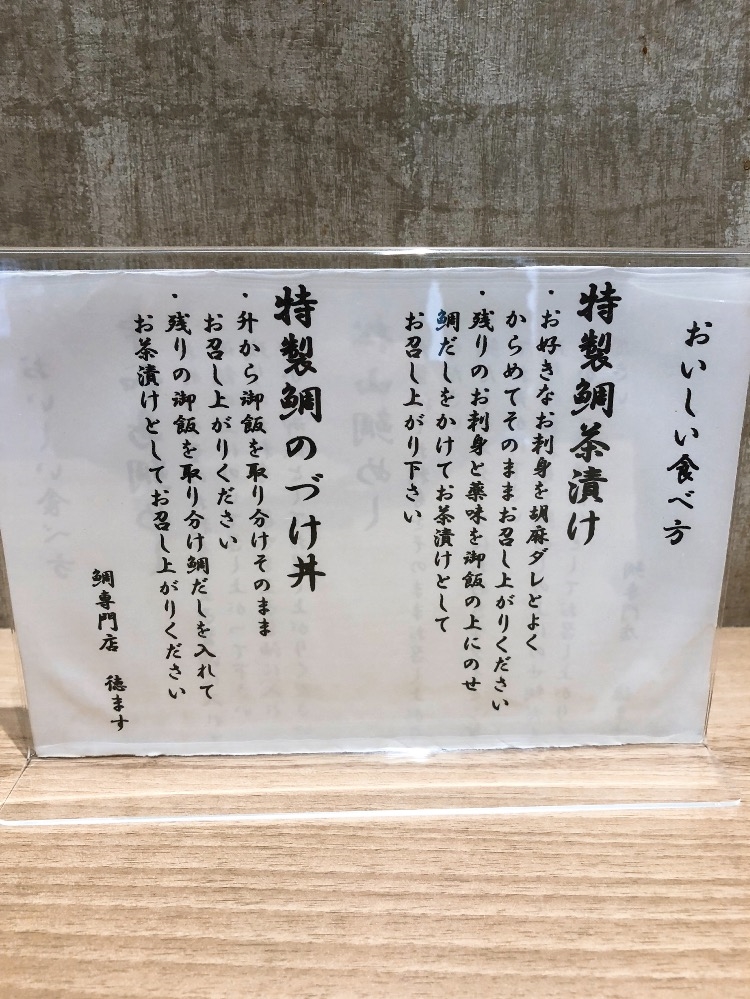 おいしい食べ方
特製鯛茶漬け
・お好きなお刺身を胡麻ダレとよく
からめてそのままお召し上がりください
・残りのお刺身と薬味を御飯の上にのせ
鯛だしをかけてお茶漬けとして
お召し上がり下さい
特製鯛のづけ丼
・升から御飯を取り分けそのまま
お召し上がりください
・残りの御飯を取り分け鯛だしを入れて
お茶漬けとしてお召し上がりください
鯛専門店 徳ます